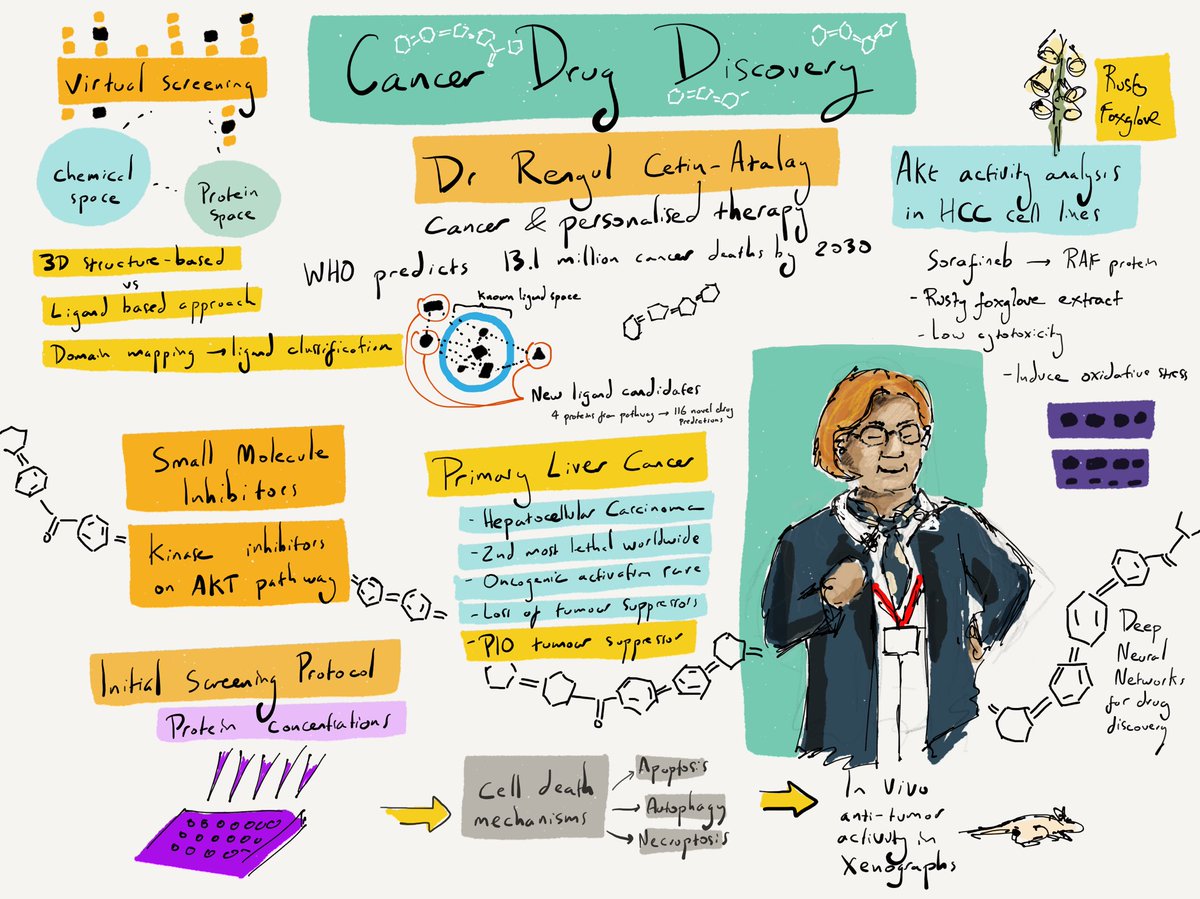 Cancer Drug Discovery
Dr Rengul Cetin-Atalay
Cancer & personalised therapy
WHO predicts 13.1 million cancer deaths by 2030
Virtual screening
Chemical
space
Protein
space
3D structure-based
vs
Ligand based approach
Domain mapping → ligand classification
Known ligand space
New ligand candidates
4 proteins from pathway → 116 novel drug
predictions
Rusty
Foxglove
Akt activity analysis
in HCC cell lines
Sorafineb → RAF protein
- Rusty foxglove extract
- Low cytotoxicity
- Induce oxidative stress
Small Molecule
Inhibitors
Kinase inhibitors
on AKT pathway
Primary Liver Cancer
- Hepatocellular Carcinoma
- 2nd most lethal worldwide
- Oncogenic activation rare
- Loss of tumour suppressors
- P10 tumour suppressor
Initial Screening Protocol
Protein Concentrations
Cell death
mechanisms
Apoptosis
Autophagy
Necroptosis
In Vivo
anti-tumor
activity in
Xenographs
Deep
Neural
Networks
for drug
discovery